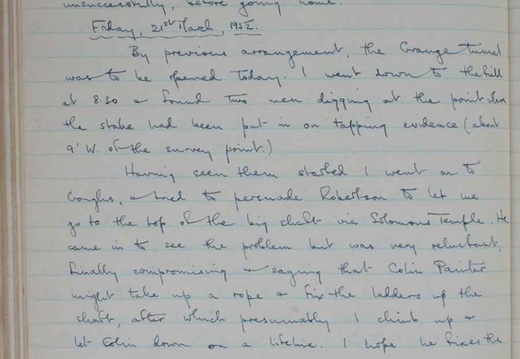 unsuccessfully, before going home.
Friday, 21st March, 1952.
By previous arrangement, the Grange tunnel
was to be opened today. I went down to the hill
at 8.30 & found two men digging at the point where
the stake had been put in on tapping evidence (about
9' W. of the survey point.)
Having seen them started I went on to
Goughs, & tried to persuade Robertson to let me
go to the top of the big shaft via Solomons Temple. He
came in to see the problem but was very reluctant,
finally compromising & saying that Colin Painter
might take up a rope & fix the ladders up the
shaft, after which presumably I climb up &
let Colin down on a lifeline. I hope he fixes the